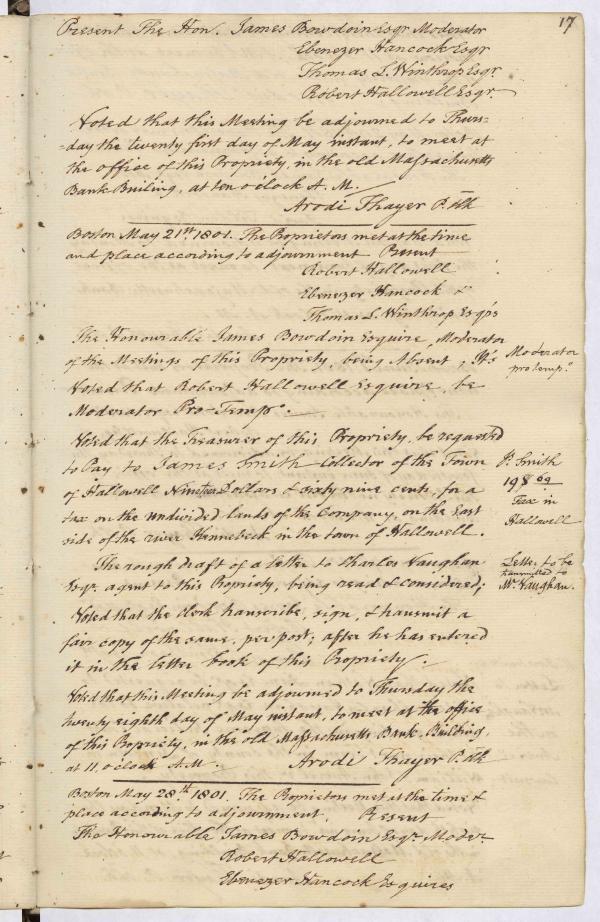 17
Present The Hon. James Bowdoin Esqr Moderator
Ebenezer Hancock Esqr
Thomas L. Winthrop Esqr.
Robert Hallowell Esqr.
Voted that this Meeting be adjourned to Thurs-
=day the twenty first day of May instant, to meet at
the office of this Propriety, in the old Massachusetts
Bank Builing, at ten o'clock A. M.
Arodi Thayer P. Clk
Boston May 21st. 1801. The Proprietors met at the time
and place according to adjournment Present
Robert Hallowell
Ebenezer Hancock &
Thomas L. Winthrop Esqrs
The Honourable James Bowdoin Esquire, Moderator
of the Meetings of this Propriety, being Absent, It's
Moderator
pro temp.o
Voted that Robert Hallowell Esquire, be
Moderator Pro-Temp.o
Voted that the Treasurer of this Propriety, be requested
to Pay to James Smith Collector of the Town
of Hallowell Nineteen Dollars & sixty nine cents, for a
tax on the undivided lands of the Company, on the East
side of the river Kennebeck in the town of Hallowell.
Js. Smith
19$ 69
Tax in
Hallowell
The rough draft of a letter to Charles Vaughan
Esqr. agent to this Propriety, being read & considered;
Letter to be
transmitted to
Mr. Vaughan.
Voted that the Clerk transcribe, sign, & transmit a
fair copy of the same, per post; after he has entered
it in the letter book of this Propriety.
Voted that this Meeting be adjourned to Thursday the
twenty eighth day of May instant, to meet at the office
of this Propriety, in the old Massachusetts Bank-Building,
at 11, o'clock A.M. Arodi Thayer P. Clk
Boston May 28th. 1801. The Proprietors met at the time &
place according to adjournment. Present
The Honourable James Bowdoin Esqr. Moder.
Robert Hallowell
Ebenezer Hancock Esquires